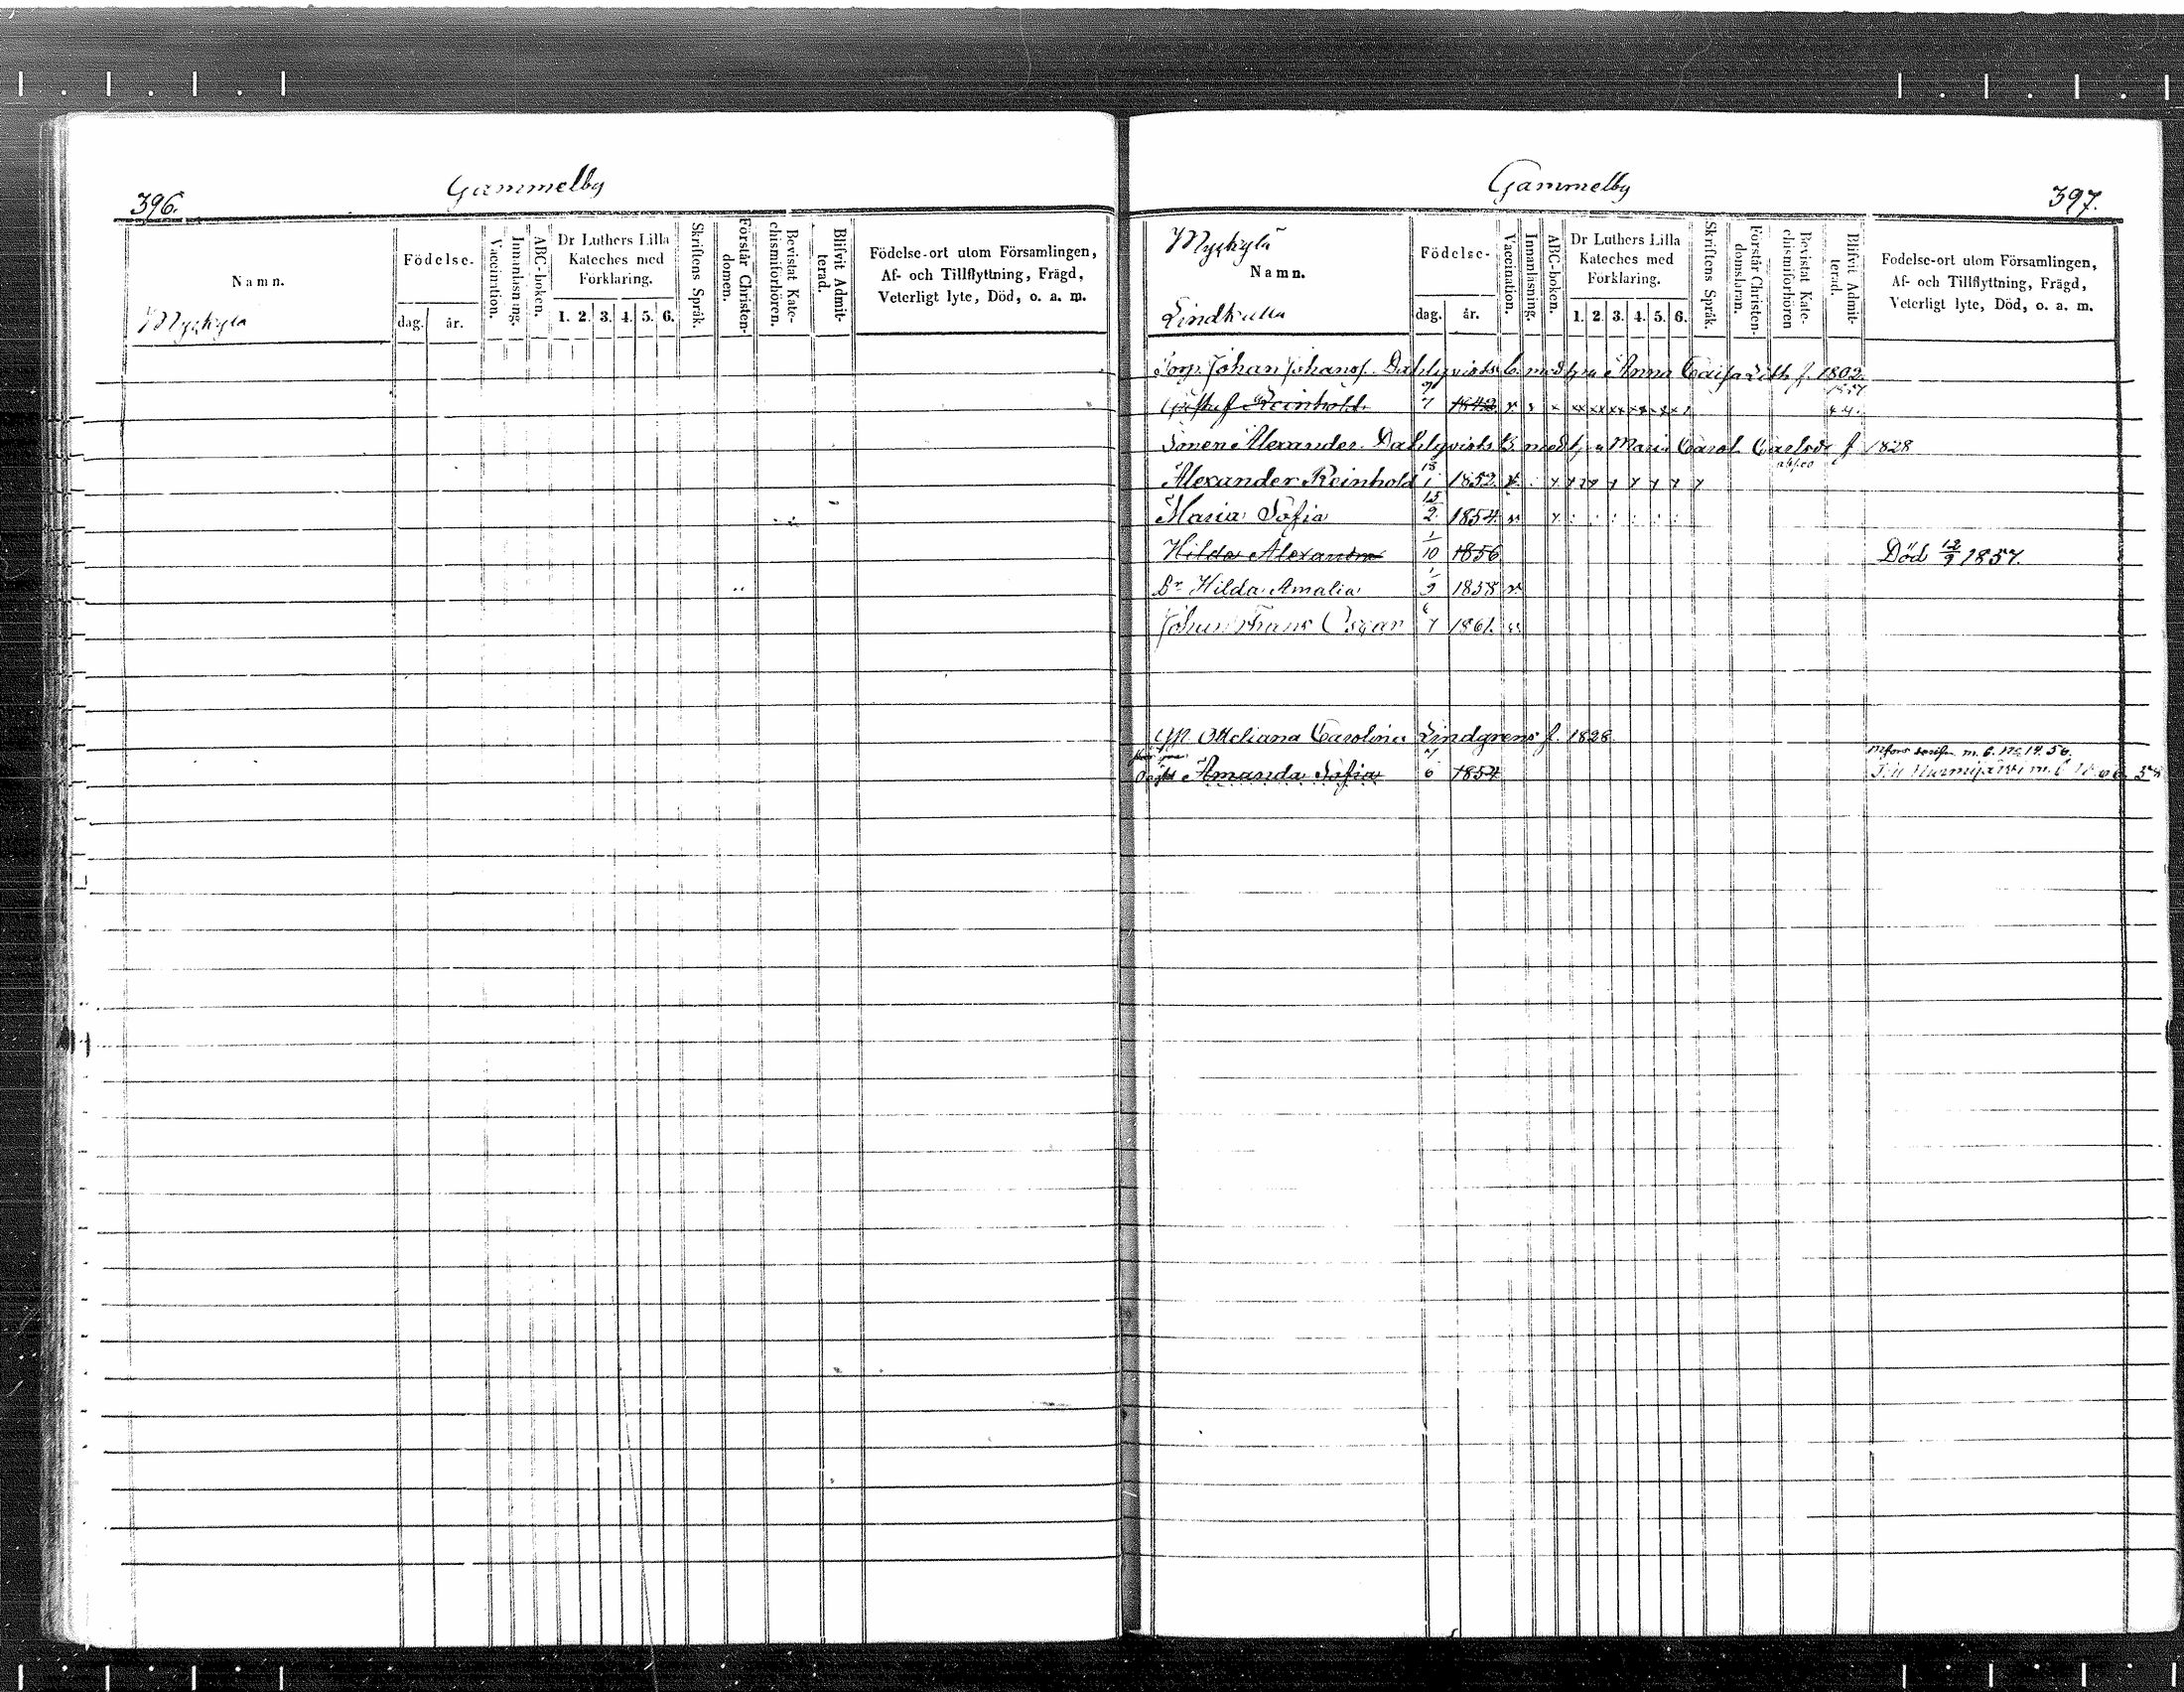 396.
Gammelby
Namn.
Myrkylä
Födelse-
dag.
år.
Vaccination.
Innanläsning.
ABC-boken.
Dr Luthers Lilla
Kateches med
Förklaring.
1. 2. 3. 4. 5. 6.
Skriftens Språk.
Förstår Christen-
domen.
Bevistat Kate-
chismiförhören.
Blifvit Admit-
terad.
Födelse-ort utom Församlingen,
Af- och Tillflyttning, Frägd,
Veterligt lyte, Död, o. a. m.
Gammelby
397.
Myrkylä
Namn.
Lindkulla
Födelse-
dag.
år.
Vaccination.
Innanläsning.
ABC-boken.
Dr Luthers Lilla
Kateches med
Förklaring.
1. 2. 3. 4. 5. 6.
Skriftens Språk.
Förstår Christen-
domsläran.
Bevistat Kate-
chismiförhören
Blifvit Admit-
terad.
Födelse-ort utom Församlingen,
Af- och Tillflyttning, Frägd,
Veterligt lyte, Död, o. a. m.
Torp. Johan Johanss. Dahlqvists B. med hu Anna Caisa f. 1802.
Gustaf Reinhold 7 1842
Sonen Alexander Dahlqvists B. med hu Maria Carol. Carlsdr f 1828
Alexander Reinhold 18/1 1852.
Maria Sofia 15/2 1854.
Hilda Alexandra 1/10 1856 Död 12/9 1857.
Dr Hilda Amalia 1/9 1858
Johan Frans Oscar 6/7 1861.
Ottiliana Carolina Lindgrens f. 1828
Amanda Sofia 6 1854